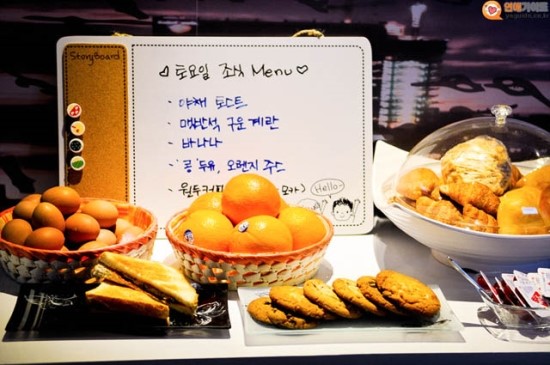 연애가이드
StoryBoard
♡토요일 조식 Menu♡
- 야채 토스트
- 맥반석 구운계란
- 바나나
- 콩두유, 오렌지 주스
- 원두커피
Hello~